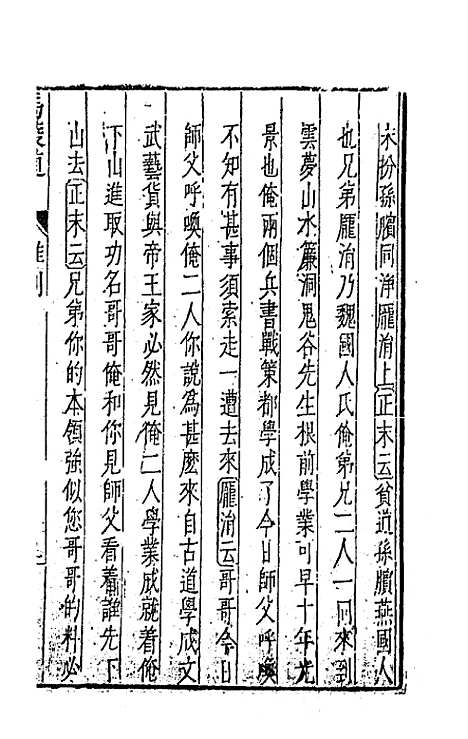 末扮孫臏同淨龐涓上正末云貧道孫臏燕國人
也兄弟龐涓乃魏國人氏俺弟兄二人一同來到
雲夢山水簾洞鬼谷先生根前學業可早十年光
景也俺兩個兵書戰策都學成了今日師父呼喚
不知有甚事須索走一遭去來龐涓云哥哥今日
師父呼喚俺二人你說為甚麼來自古道學成文
武藝貨與帝王家必然見俺二人學業成就着俺
下山進取功名哥哥俺和你見師父看着誰先下
山去正末云兄弟你的本領強似您哥哥的料必
馬陵道
雜劇